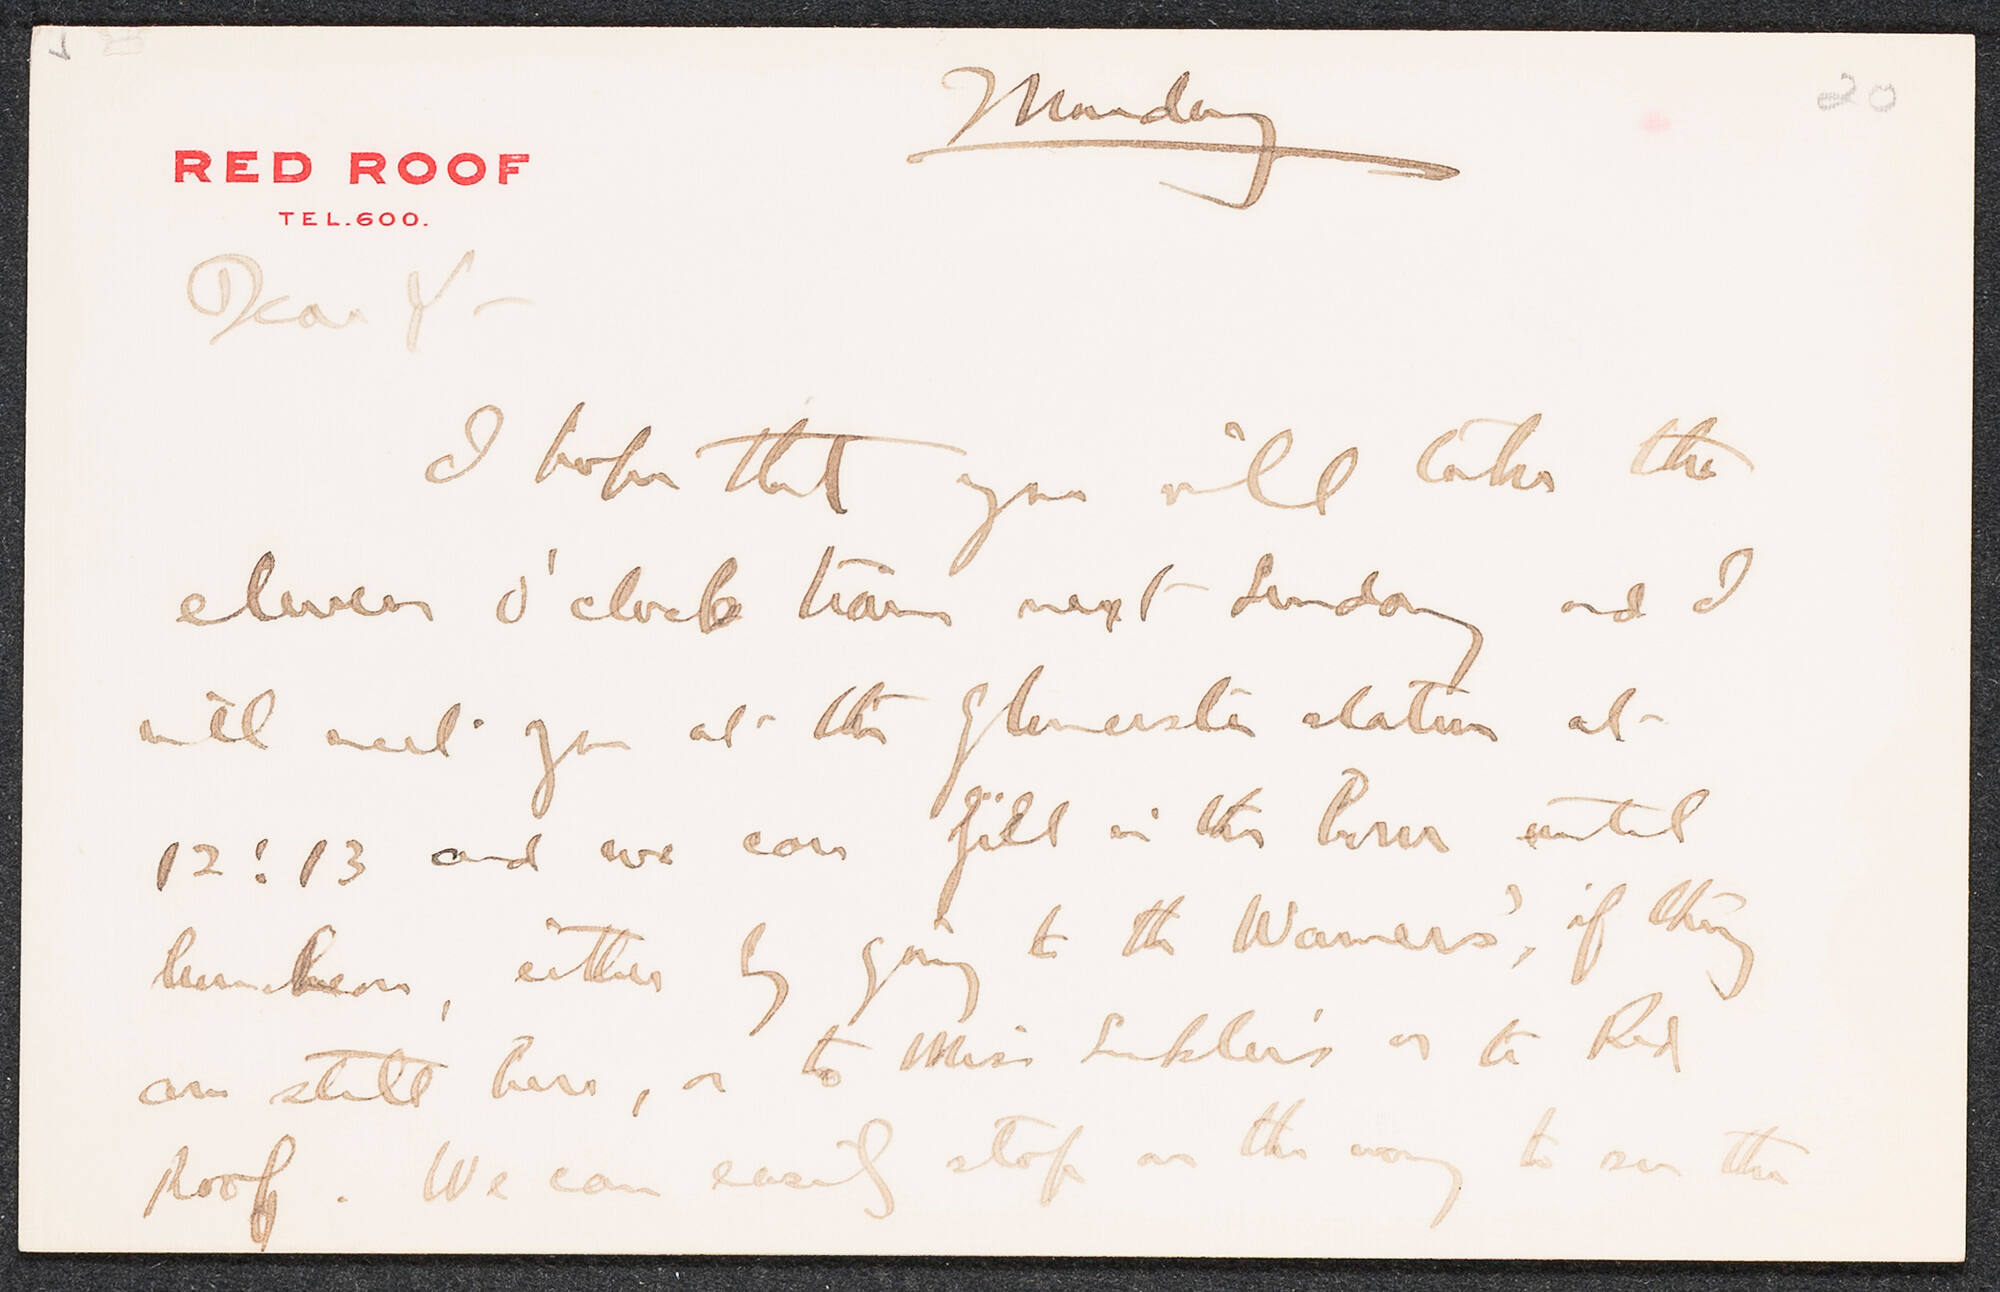 20
Monday
RED ROOF
TEL.600.
Dear Y—
I hope that you will take the
eleven o'clock train next Sunday and I
will meet you at the Gloucester station at
12:13 and we can fill in the hour until
luncheon, either by going to the Warners', if they
are still here, or to Miss or to Red
Roof. We can easily stop on the way to see the